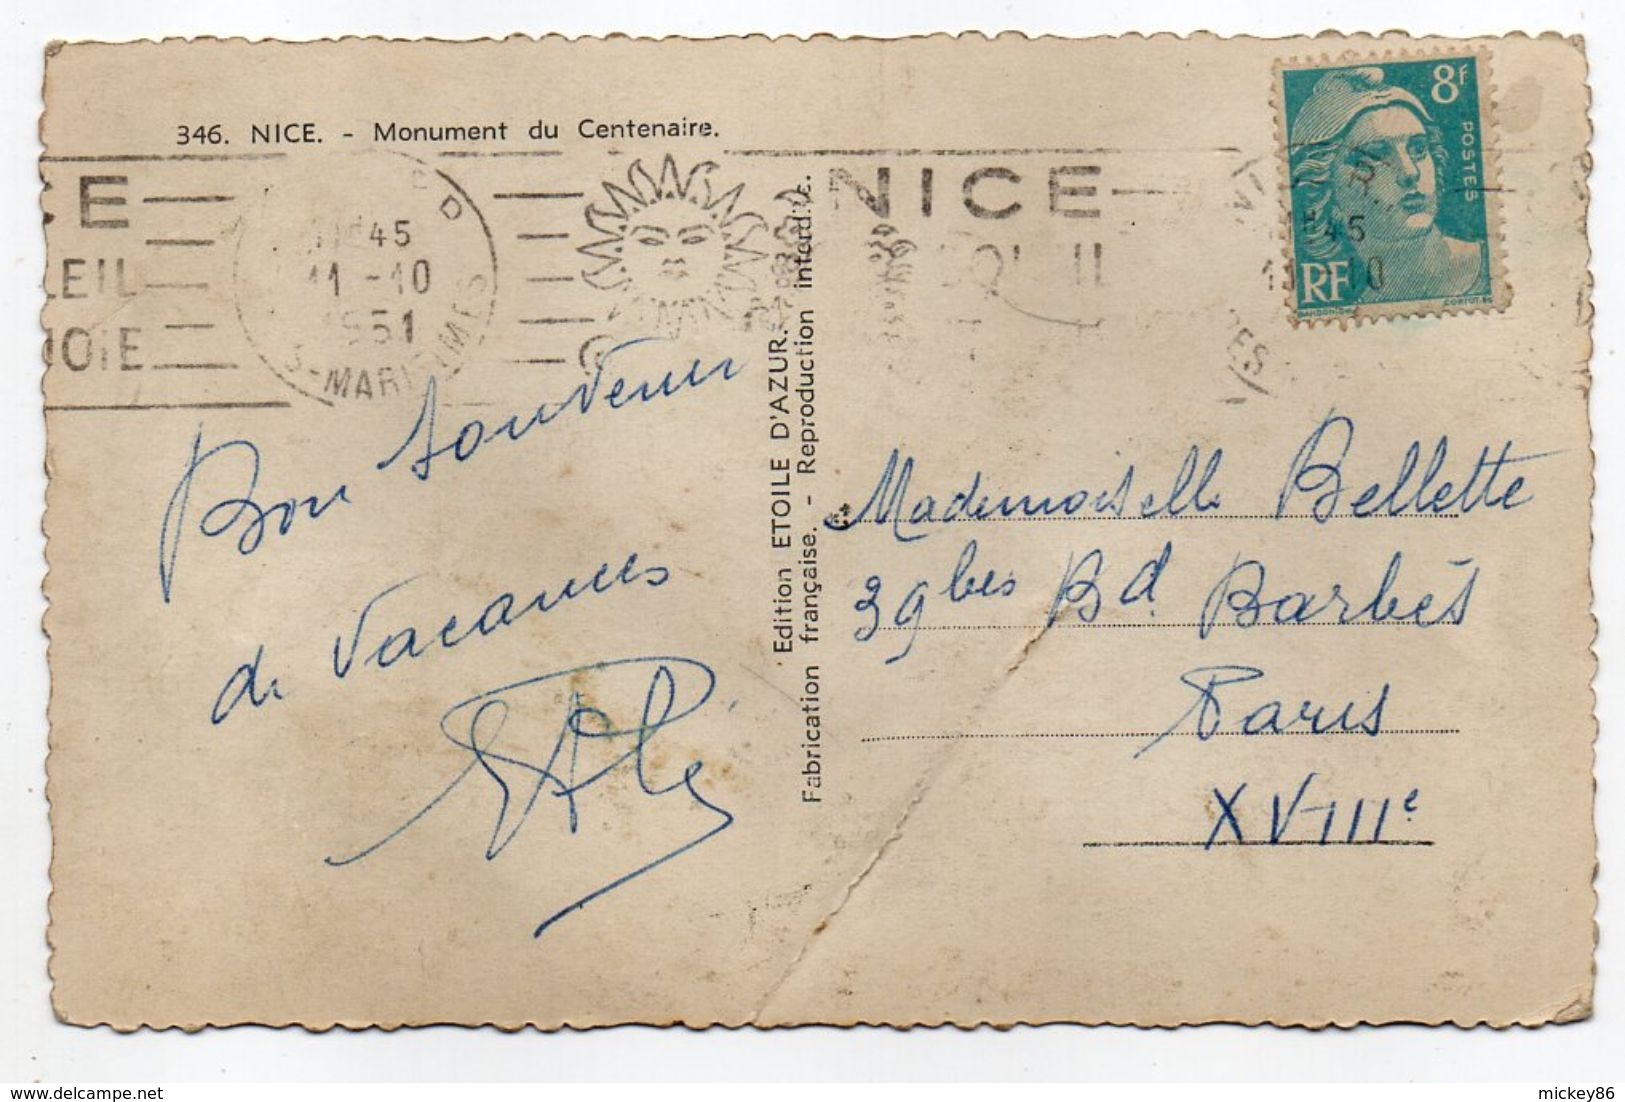 346. NICE. - Monument du Centenaire.
CE
LEIL
JOIE
45
11-10
1951
NICE
8f
POSTES
RF
45
10
Bon souvenir
de Vacances
Edition ETOILE D'AZUR.
Fabrication française. - Reproduction interdite.
Mademoiselle Bellette
39 bis Bd Barbès
Paris
XVIIIe
mickey86